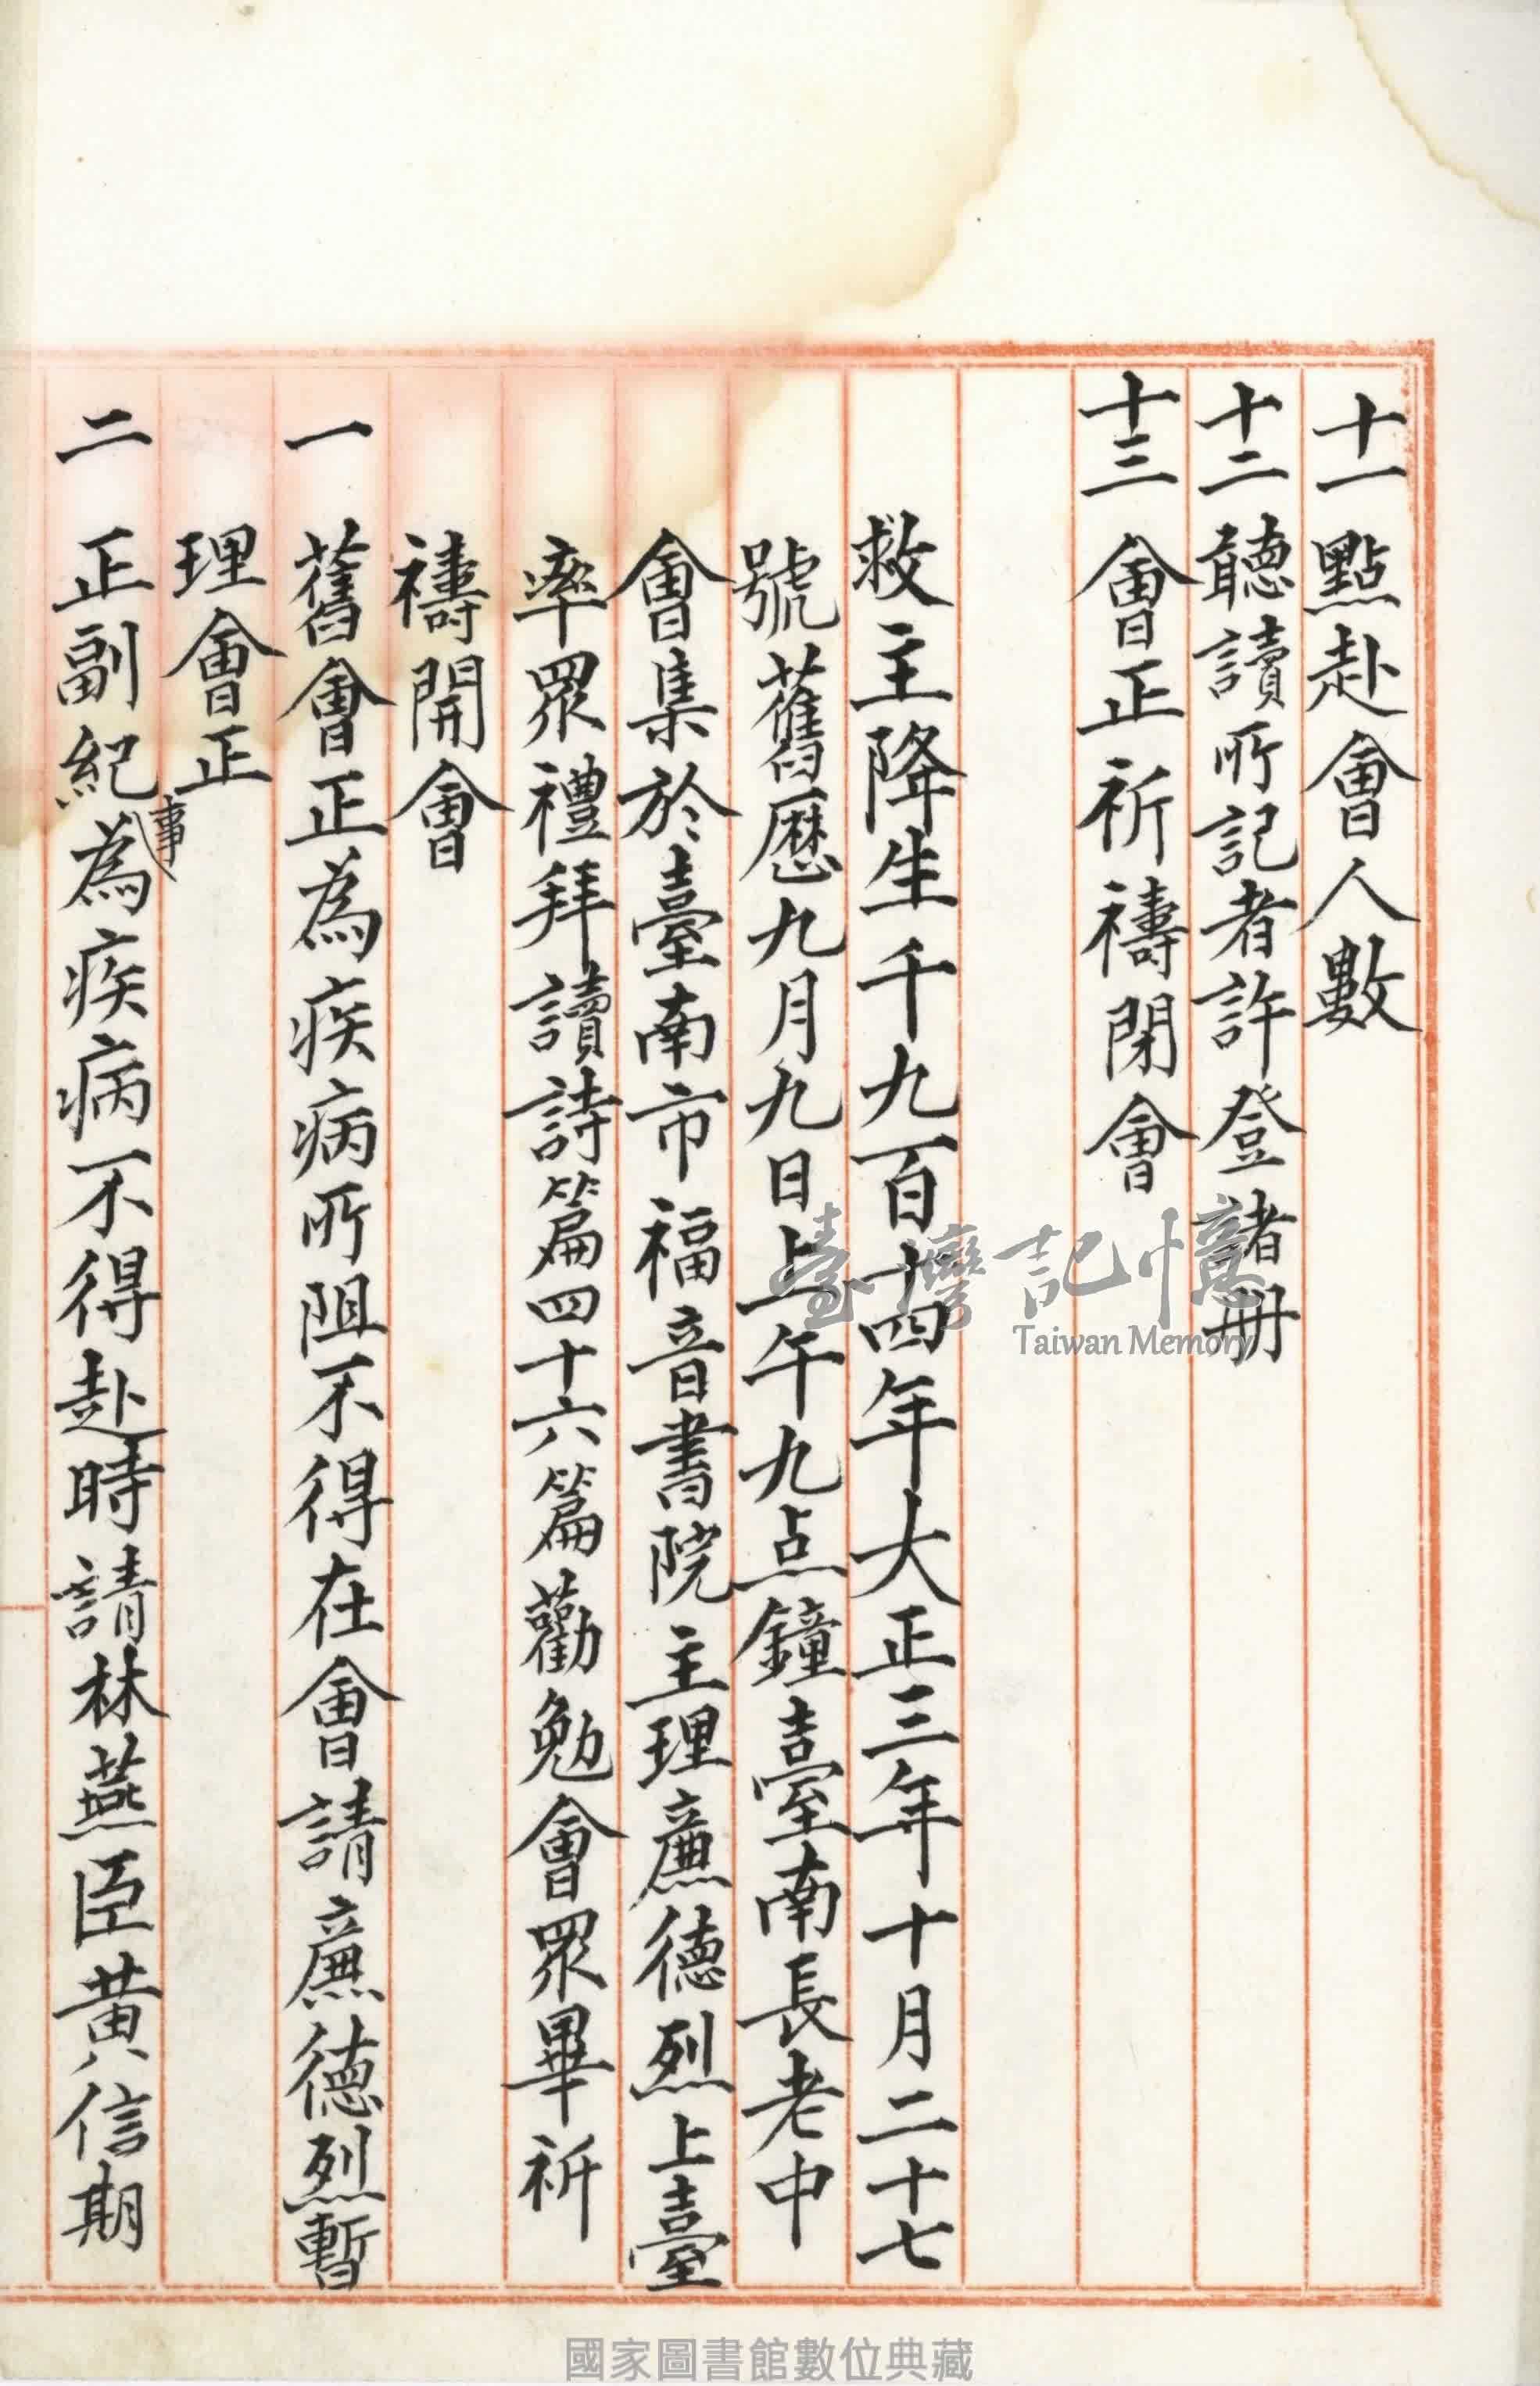 十一點赴會人數
十二聽讀所記者許登諸冊
十三會正祈禱閉會
救主降生千九百十四年大正三年十月二十七
號舊曆九月九日上午九点鐘臺南長老中
會集於臺南市福音書院主理廉德烈上臺
率眾禮拜讀詩篇四十六篇勸勉會眾畢祈
禱開會
一舊會正為疾病所阻不得在會請廉德烈暫
理會正
二正副紀事為疾病不得赴時請林燕臣黃信期
臺灣記憶
Taiwan Memory
國家圖書館數位典藏